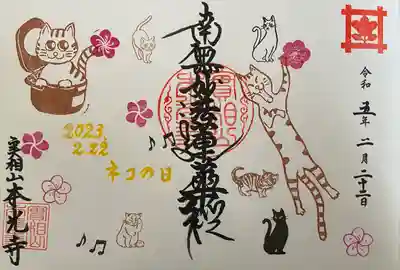 令和五年二月二十二日
南無妙法蓮華経
2023.
2.22
ネコの日
実相山本光寺